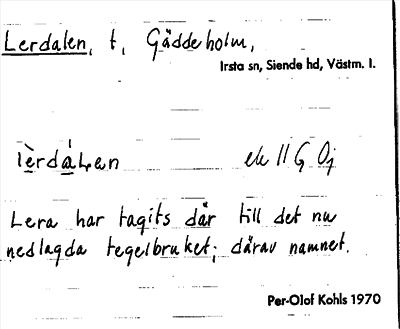 Lerdalen, t, Gäddeholm,
Irsta sn, Siende hd, Västm. l.
Lera har tagits där till det nu
nedlagda tegelbruket; därav namnet.
Per-Olof Kohls 1970